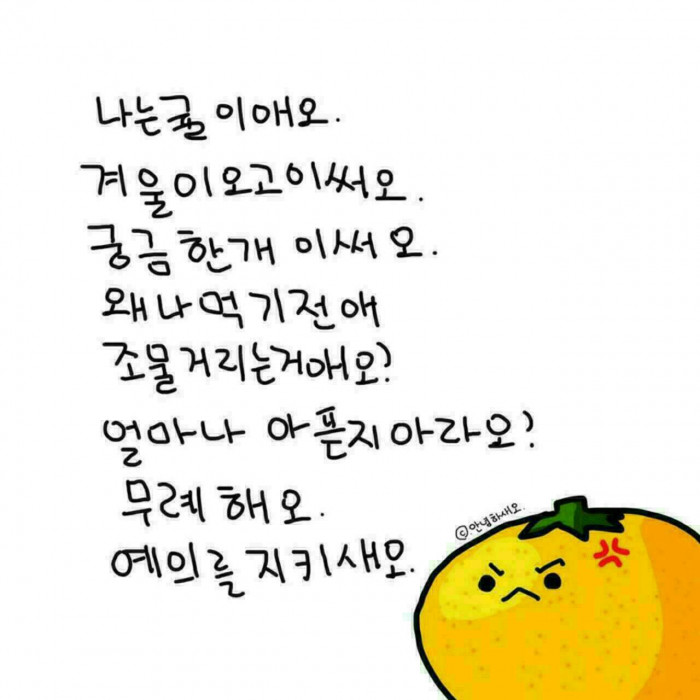 나는귤이애오.
겨울이오고이써오.
궁금한개 이써오.
왜나먹기전애
조물거리는거애오?
얼마나 아픈지아라오?
무례해오.
예의를지키새오.
ⓒ안녕하새오.